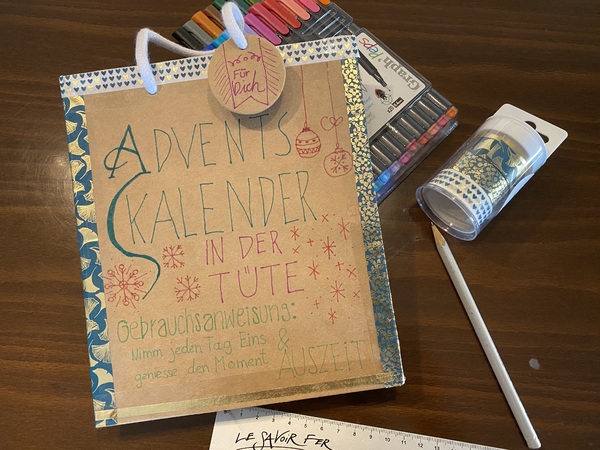 Für
Dich
ADVENTS
KALENDER
IN DER
TÜTE
Gebrauchsanweisung:
Nimm jeden Tag Eins
&
geniesse den Moment
AUSZEIT
Graph'Peps
1 2 3 4 5 6 7 8 9 10 11 12 13
LE SAVOIR FER